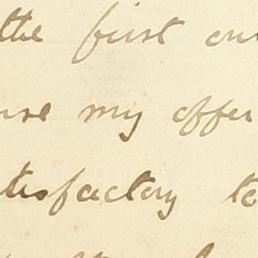 the first
my offer
tisfactory to